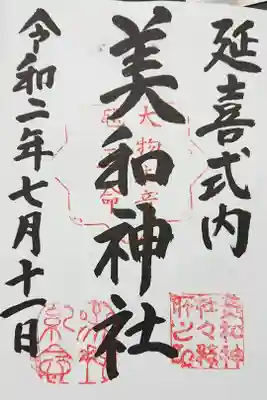 延喜式内
美和神社
令和二年七月十一日
大物主
命
美和神
社々務
所之印